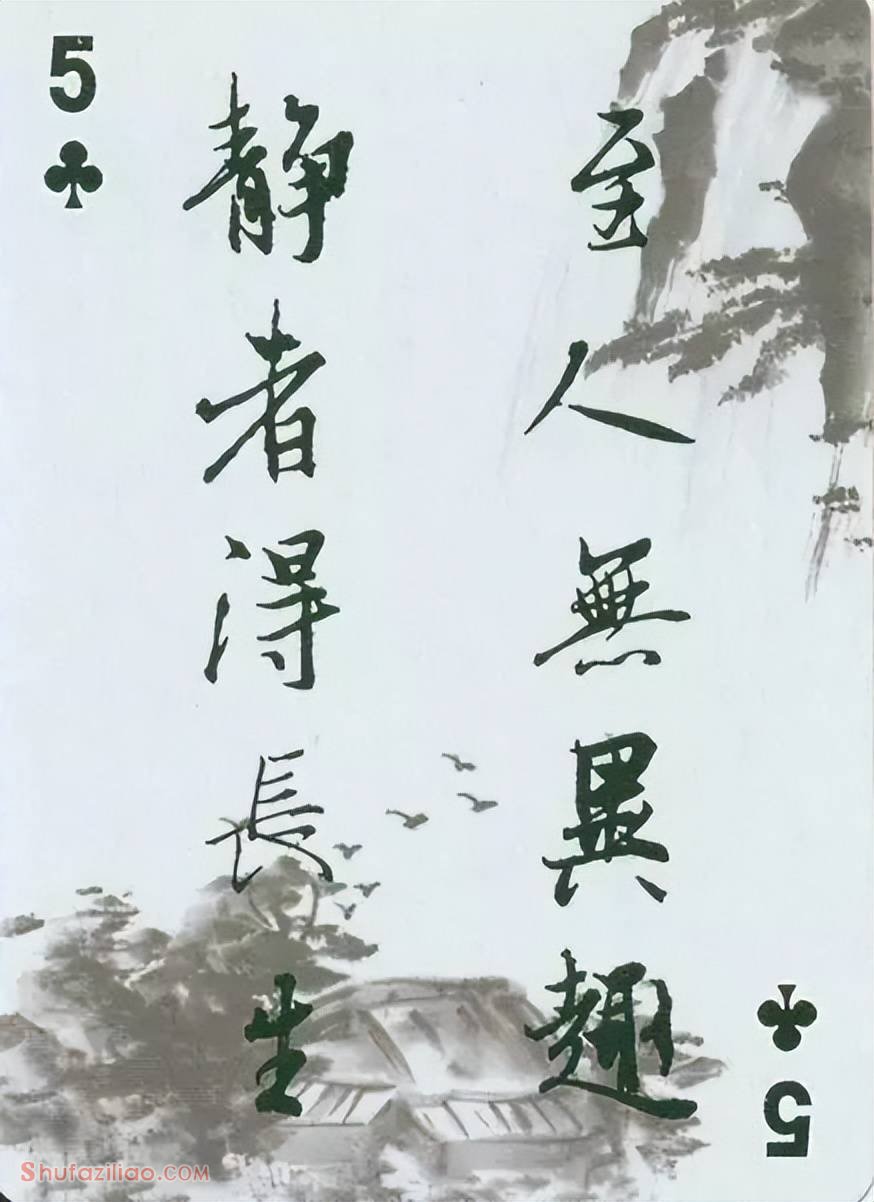 5
至人無異趣
靜者得長生
5
Shufaziliao.com